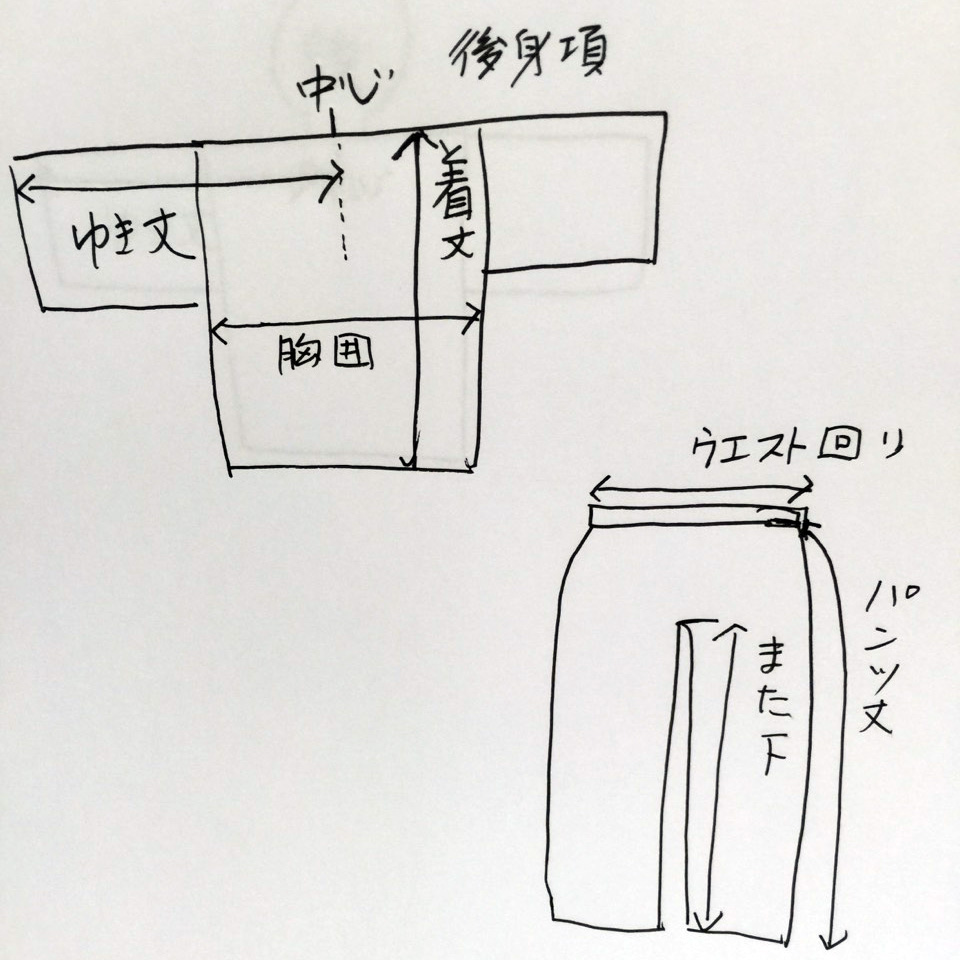 後身項
中心
着丈
ゆき丈
胸囲
ウエスト回り
パンツ丈
また下